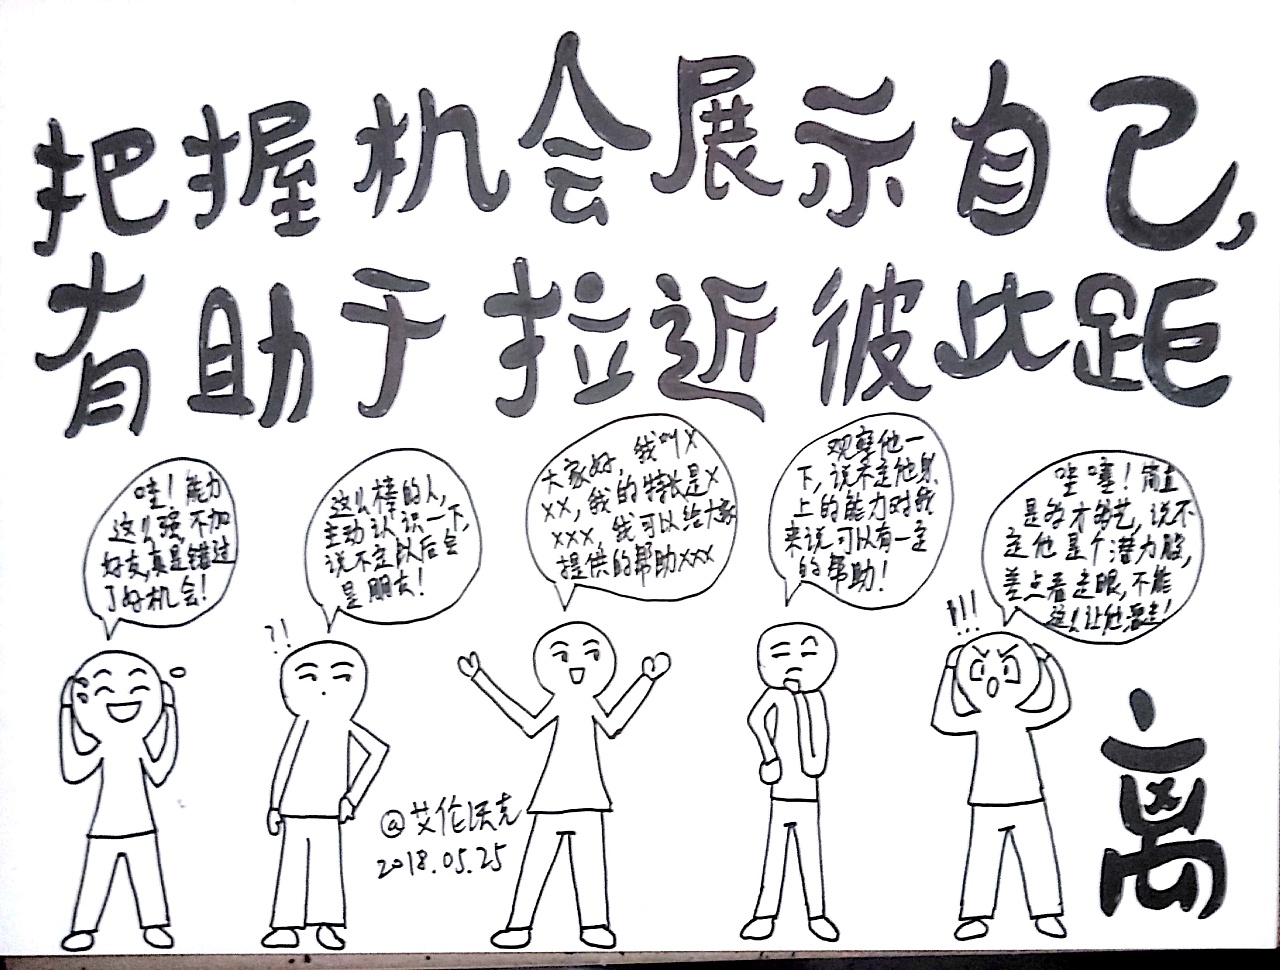 把握机会展示自己,
有助于拉近彼此距
离
哇！能力
这么强,不加
好友,真是错过
了好机会！
这么棒的人,
主动认识一下,
说不定以后会
是朋友！
大家好,我叫X
XX,我的特长是X
XXX,我可以给大家
提供的帮助XXX
观察他一
下,说不定他身
上的能力对我
来说可以有一定
的帮助！
哇噻！简直
是多才多艺,说不
定他是个潜力股,
差点看走眼,不能
这么让他溜走！
?!
!!!
@艾伦沃克
2018.05.25